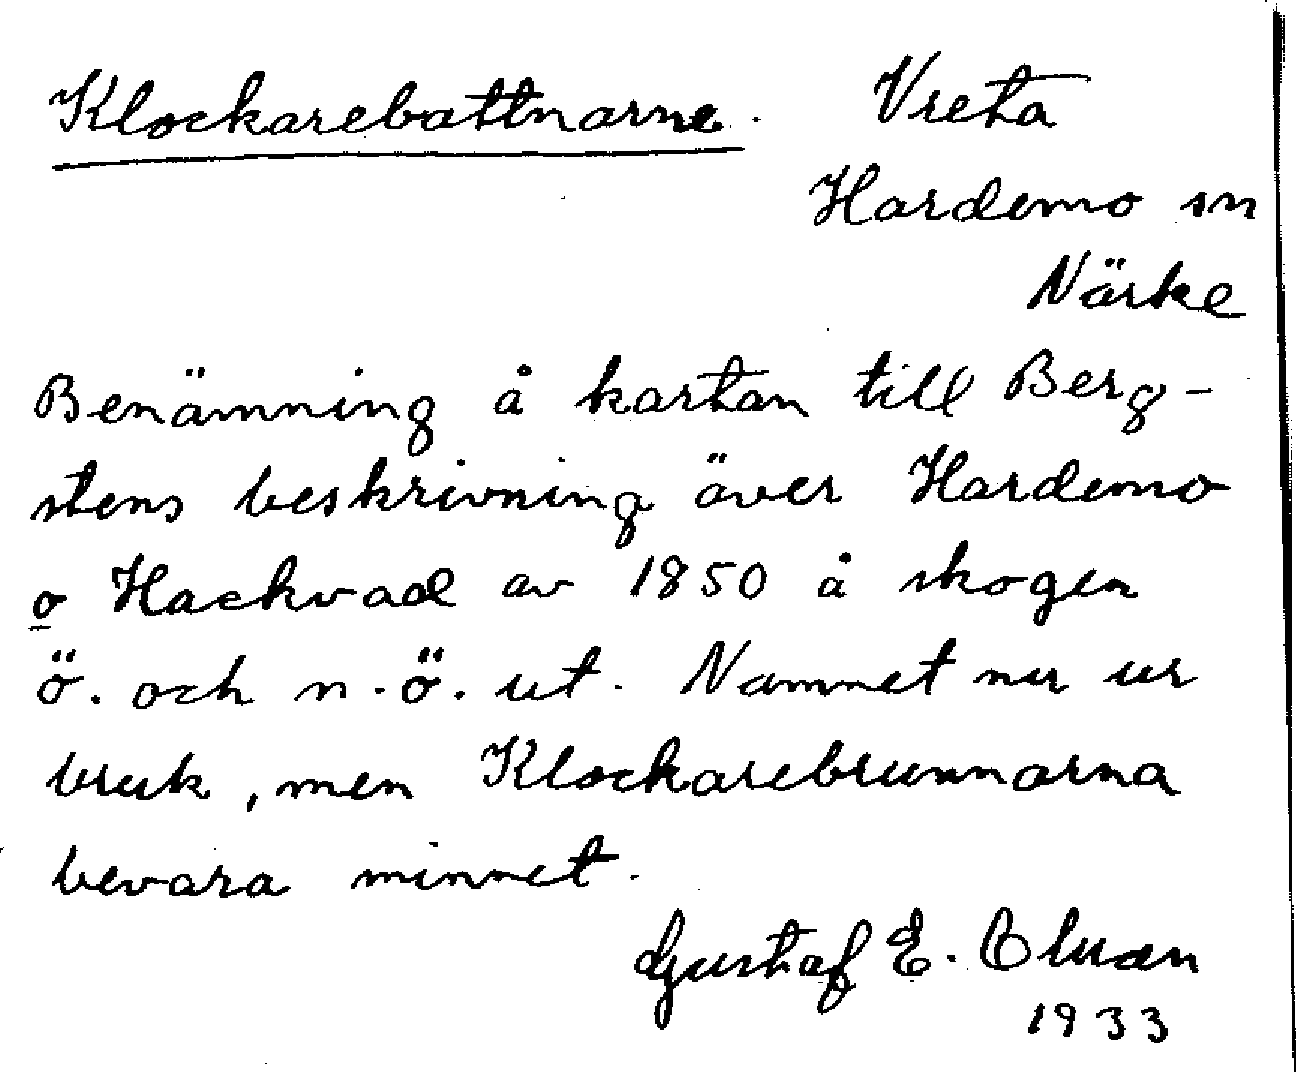 Klockarebottnarne. Vreta
Hardemo sn
Närke
Benämning å kartan till Berg-
stens beskrivning över Hardemo
o Hackvad av 1850 å skogen
ö. och n.ö. ut. Namnet nu ur
bruk, men Klockarebrunnarna
bevara minnet.
Gustaf E.
1933